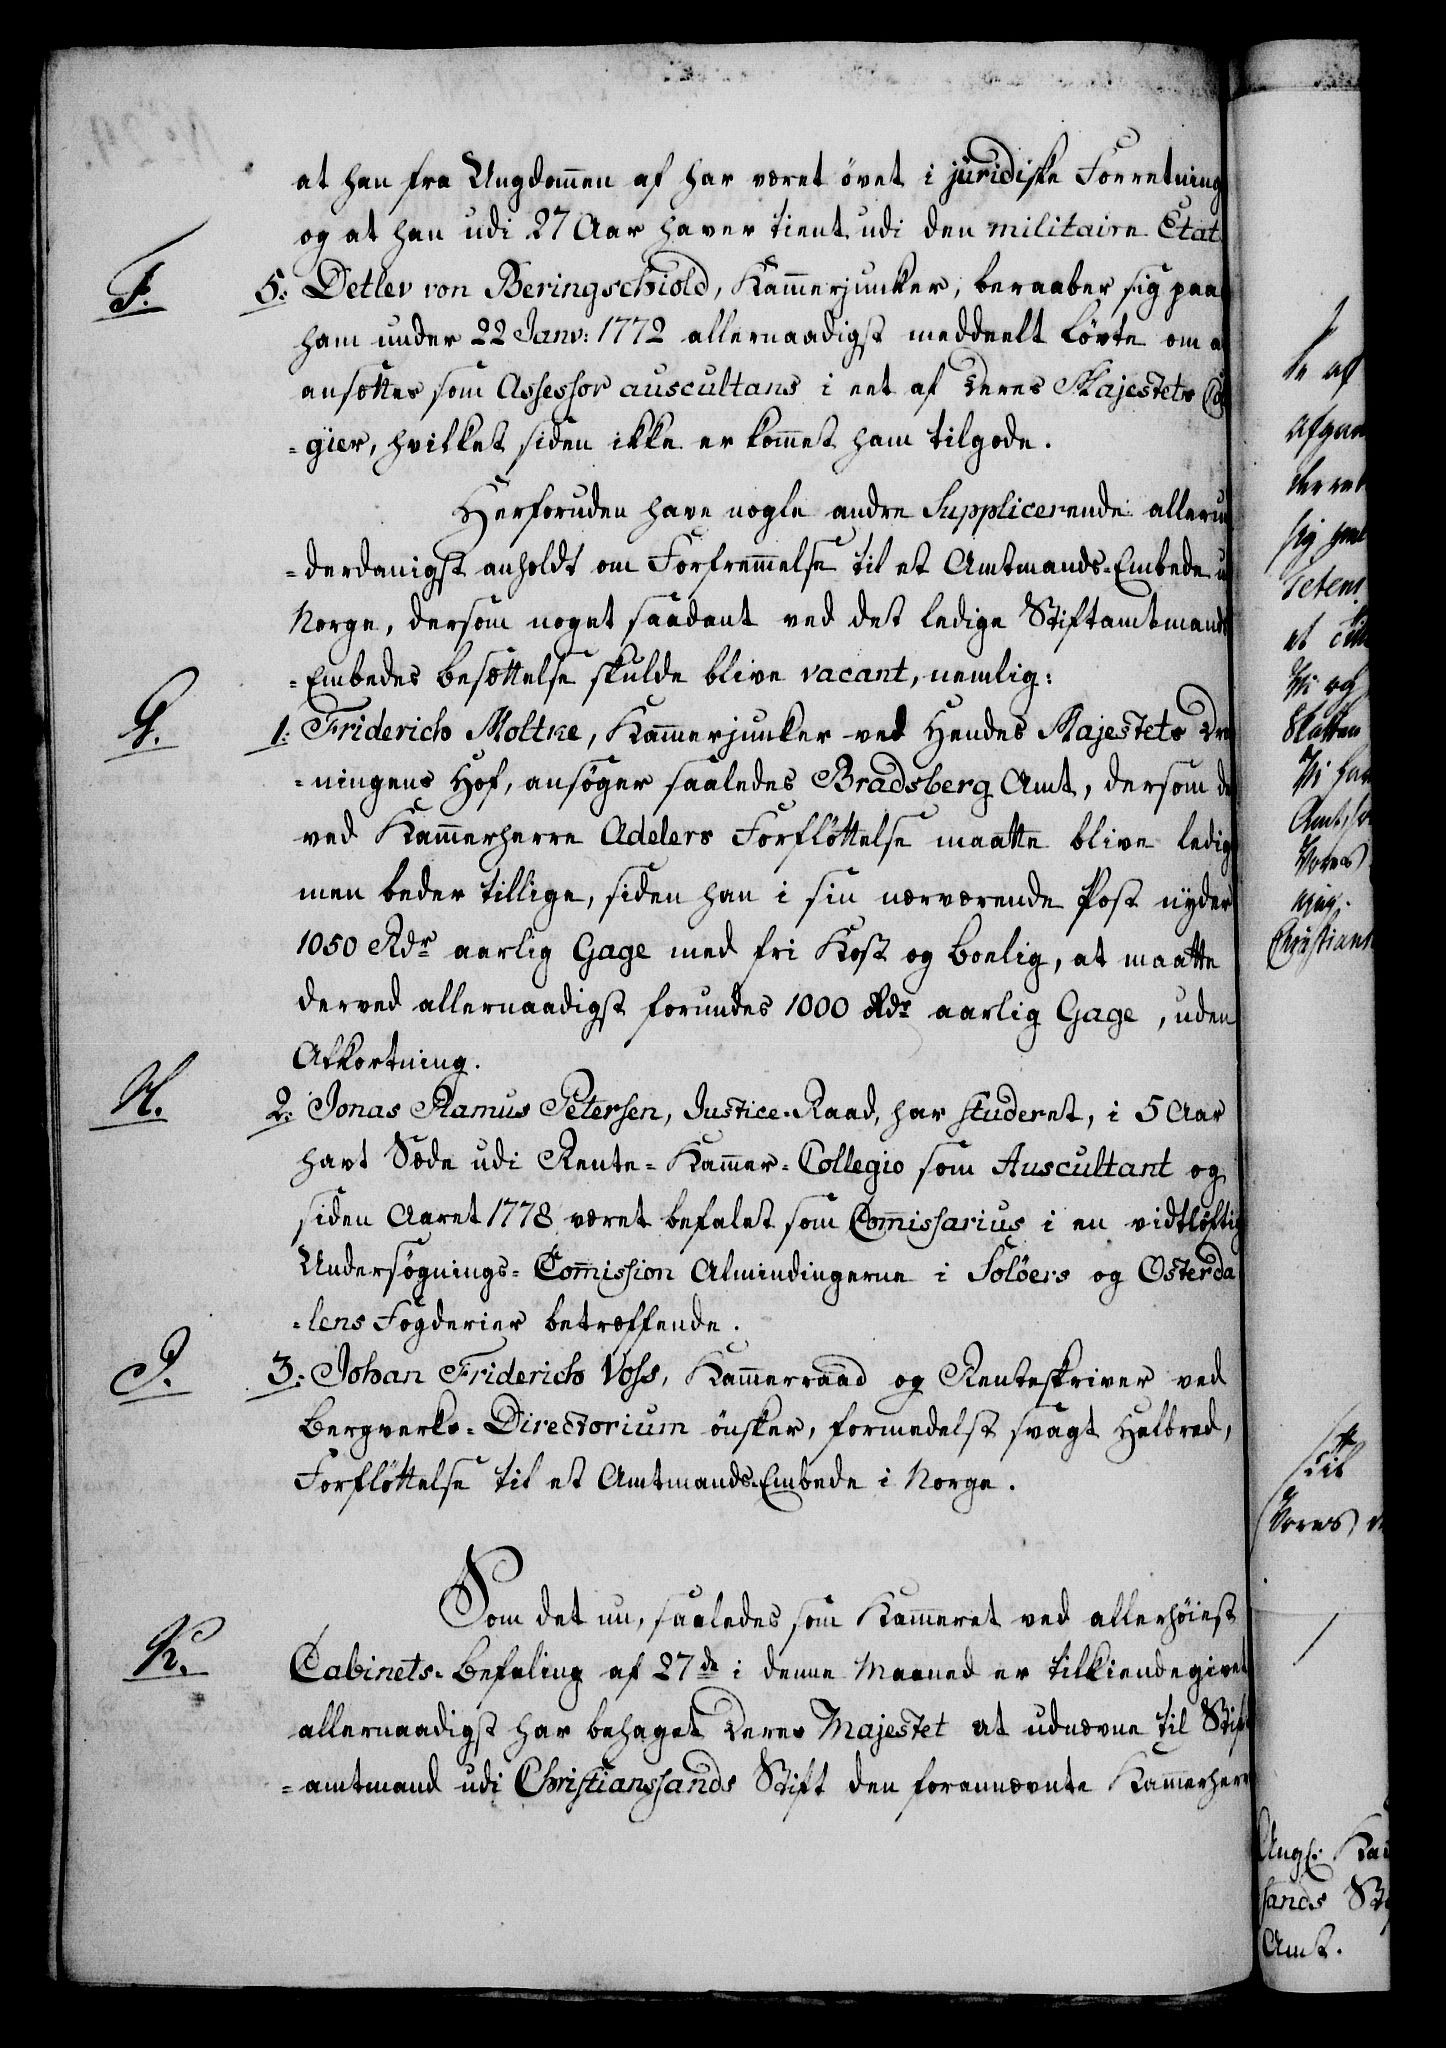 at han fra Ungdommen af har været övet i juridiske Forretning
og at han udi 27 Aar haver tient udi den militaire Etat
F. 5. Detlev von Beringschiold, Kammerjunker, beraaber sig paa
ham under 22 Janv: 1772 allernaadigst meddeelt Lövte om
ansættes som Assessor auscultans i eet af Deres Majestets
-gier, hvilket siden ikke er kommet ham tilgode.
Herforuden have nogle andre Supplicerende allerun
-derdanigst anholdt om Forfremmelse til et Amtmands-Embede
Norge, dersom noget saadant ved det ledige Stiftamtmands
-Embedes besættelse skulde blive vacant, nemlig:
G. 1. Friderich Moltke, Kammerjunker ved Hendes Majestets Dro
-ningens Hof, ansöger saaledes Bradsberg Amt, dersom de
ved Kammerherre Adelers Forflöttelse maatte blive ledig
men beder tillige, siden han i sin nærværende Post nyder
1050 Rdr aarlig Gage med fri Kost og boelig, at maatte
derved allernaadigst forundes 1000 Rdr aarlig Gage, uden
Afkortning.
H. 2. Jonas Ramus Petersen, Justice-Raad, har studeret, i 5 Aar
havt Sæde udi Rente-Kammer-Collegio som Auscultant og
siden Aaret 1778 været befalet som Commissarius i en vidtlöftig
Undersøgnings-Commission Almindingerne i Solöers og Österda
-lens Fogderier betræffende.
J. 3. Johan Friderich Voss, Kammerraad og Renteskriver ved
Bergverks-Directorium önsker, formedelst svagt Helbred,
Forflöttelse til et Amtmands-Embede i Norge.
Som det nu, saaledes som Kammeret ved allerhöiest
K. Cabinets-Befaling af 27de i denne Maaned er tilkiendegivet
allernaadigst har behaget Deres Majestet at udnævne til Stift
-amtmand udi Christianssands Stift den forannævnte Kammerherr